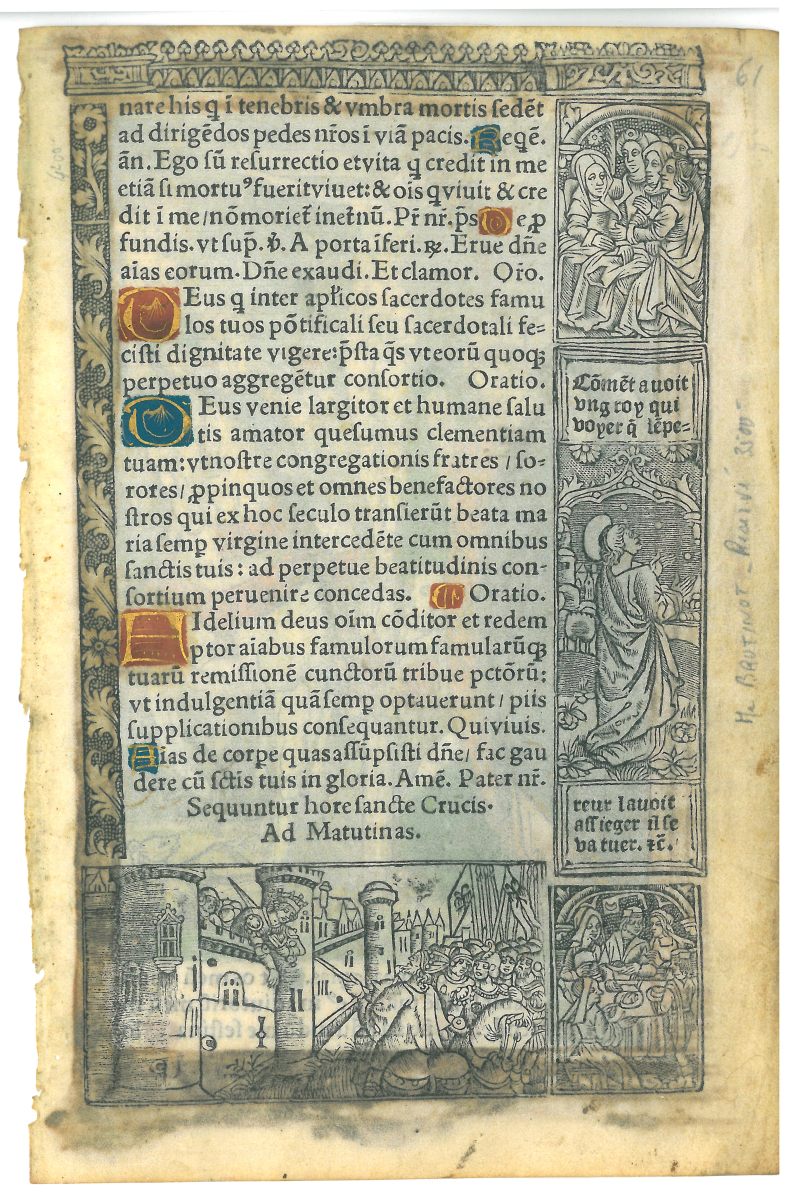 nare his q̄ ī tenebris & vmbra mortis sedēt
ad dirigēdos pedes nr̄os ī viā pacis. Reqē.
ān. Ego sū resurrectio et vita q̄ credit in me
etiā si mortuꝰ fuerit viuet: & oīs q̄ viuit & cre
dit ī me / nō moriet̄ in et̄nū. Pr̄ nr̄. p̄s De ꝓ
fundis. vt sup̄. ꝟ. A porta īferi. ℟. Erue dn̄e
aīas eorum. Dn̄e exaudi. Et clamor. Or̄o.
DEus q̄ inter apl̄icos sacerdotes famu
los tuos pōtificali seu sacerdotali fe=
cisti dignitate vigere: p̄sta q̄s vt eorū quoqꝫ
perpetuo aggregētur consortio. Oratio.
DEus venie largitor et humane salu
tis amator quesumus clementiam
tuam: vt nostre congregationis fratres / so-
rores / ꝓpinquos et omnes benefactores no
stros qui ex hoc seculo transierūt beata ma
ria semꝑ virgine intercedēte cum omnibus
sanctis tuis: ad perpetue beatitudinis con-
sortium peruenire concedas. Oratio.
FIdelium deus oīm cōditor et redem
ptor aīabus famulorum famularūqꝫ
tuarū remissionē cunctorū tribue pctōrū:
vt indulgentiā quā semꝑ optauerunt / piis
supplicationibus consequantur. Qui viuis.
Aīas de corpe quas assūpsisti dn̄e / fac gau
dere cū sctīs tuis in gloria. Amē. Pater nr̄.
Sequuntur hore sancte Crucis.
Ad Matutinas.
Cōmēt auoit
vng roy qui
voyer q̄ lēpe=
reur lauoit
assieger il se
va tuer. ⁊c̄.
61